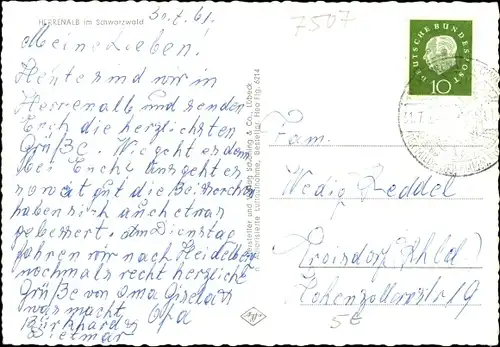 HERRENALB im Schwarzwald
30.7.61.
7507
Meine Lieben!
Heute sind wir in
Herrenalb und senden
Euch die herzlichsten
Grüße. Wie geht es denn
bei Euch? Uns geht es
soweit gut die Beiserchen
haben sich auch etwas
gebessert. Am Dienstag
fahren wir nach Heidelberg
nochmals recht herzliche
Grüße von Oma Gisela
was macht Opa
Burkhard
Dietmar
Schöning & Co., Lübeck
Luftaufnahme, Bestell-Nr. Hee Flg. 6214
DEUTSCHE BUNDESPOST
10
Fam.
Wedig Reddel
Roisdorf (Rhld)
Hohenzollernstr 19
5€